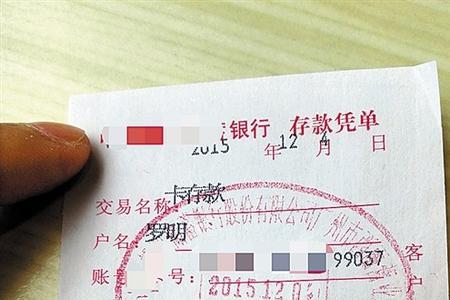 银行 存款凭单
2015 年 12 月 4 日
交易名称 卡存款
户名 罗明
账 号: 99037
股份有限公司广州市
2015.12.0
客
户